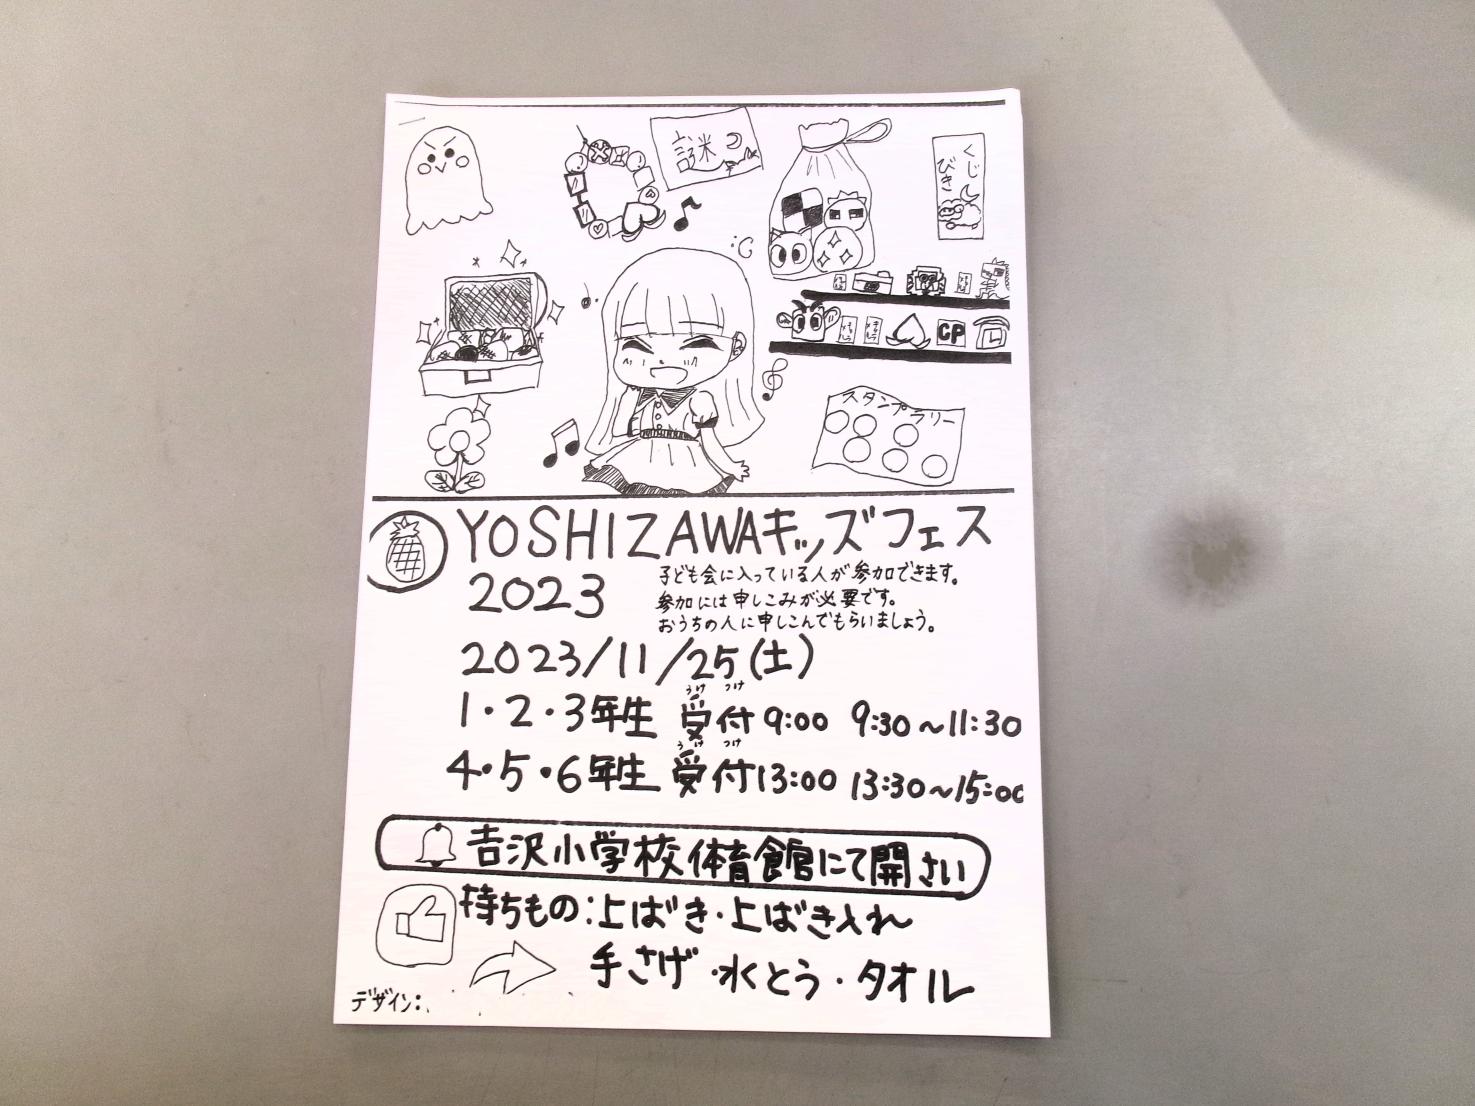 謎
くじ
びき
CP
スタンプラリー
YOSHIZAWAキッズフェス
2023
子ども会に入っている人が参加できます。
参加には申しこみが必要です。
おうちの人に申しこんでもらいましょう。
2023/11/25(土)
1・2・3年生 受付 9:00 9:30～11:30
うけ つけ
4・5・6年生 受付13:00 13:30～15:00
うけ つけ
吉沢小学校体育館にて開さい
持ちもの:上ばき・上ばき入れ
手さげ・水とう・タオル
デザイン: